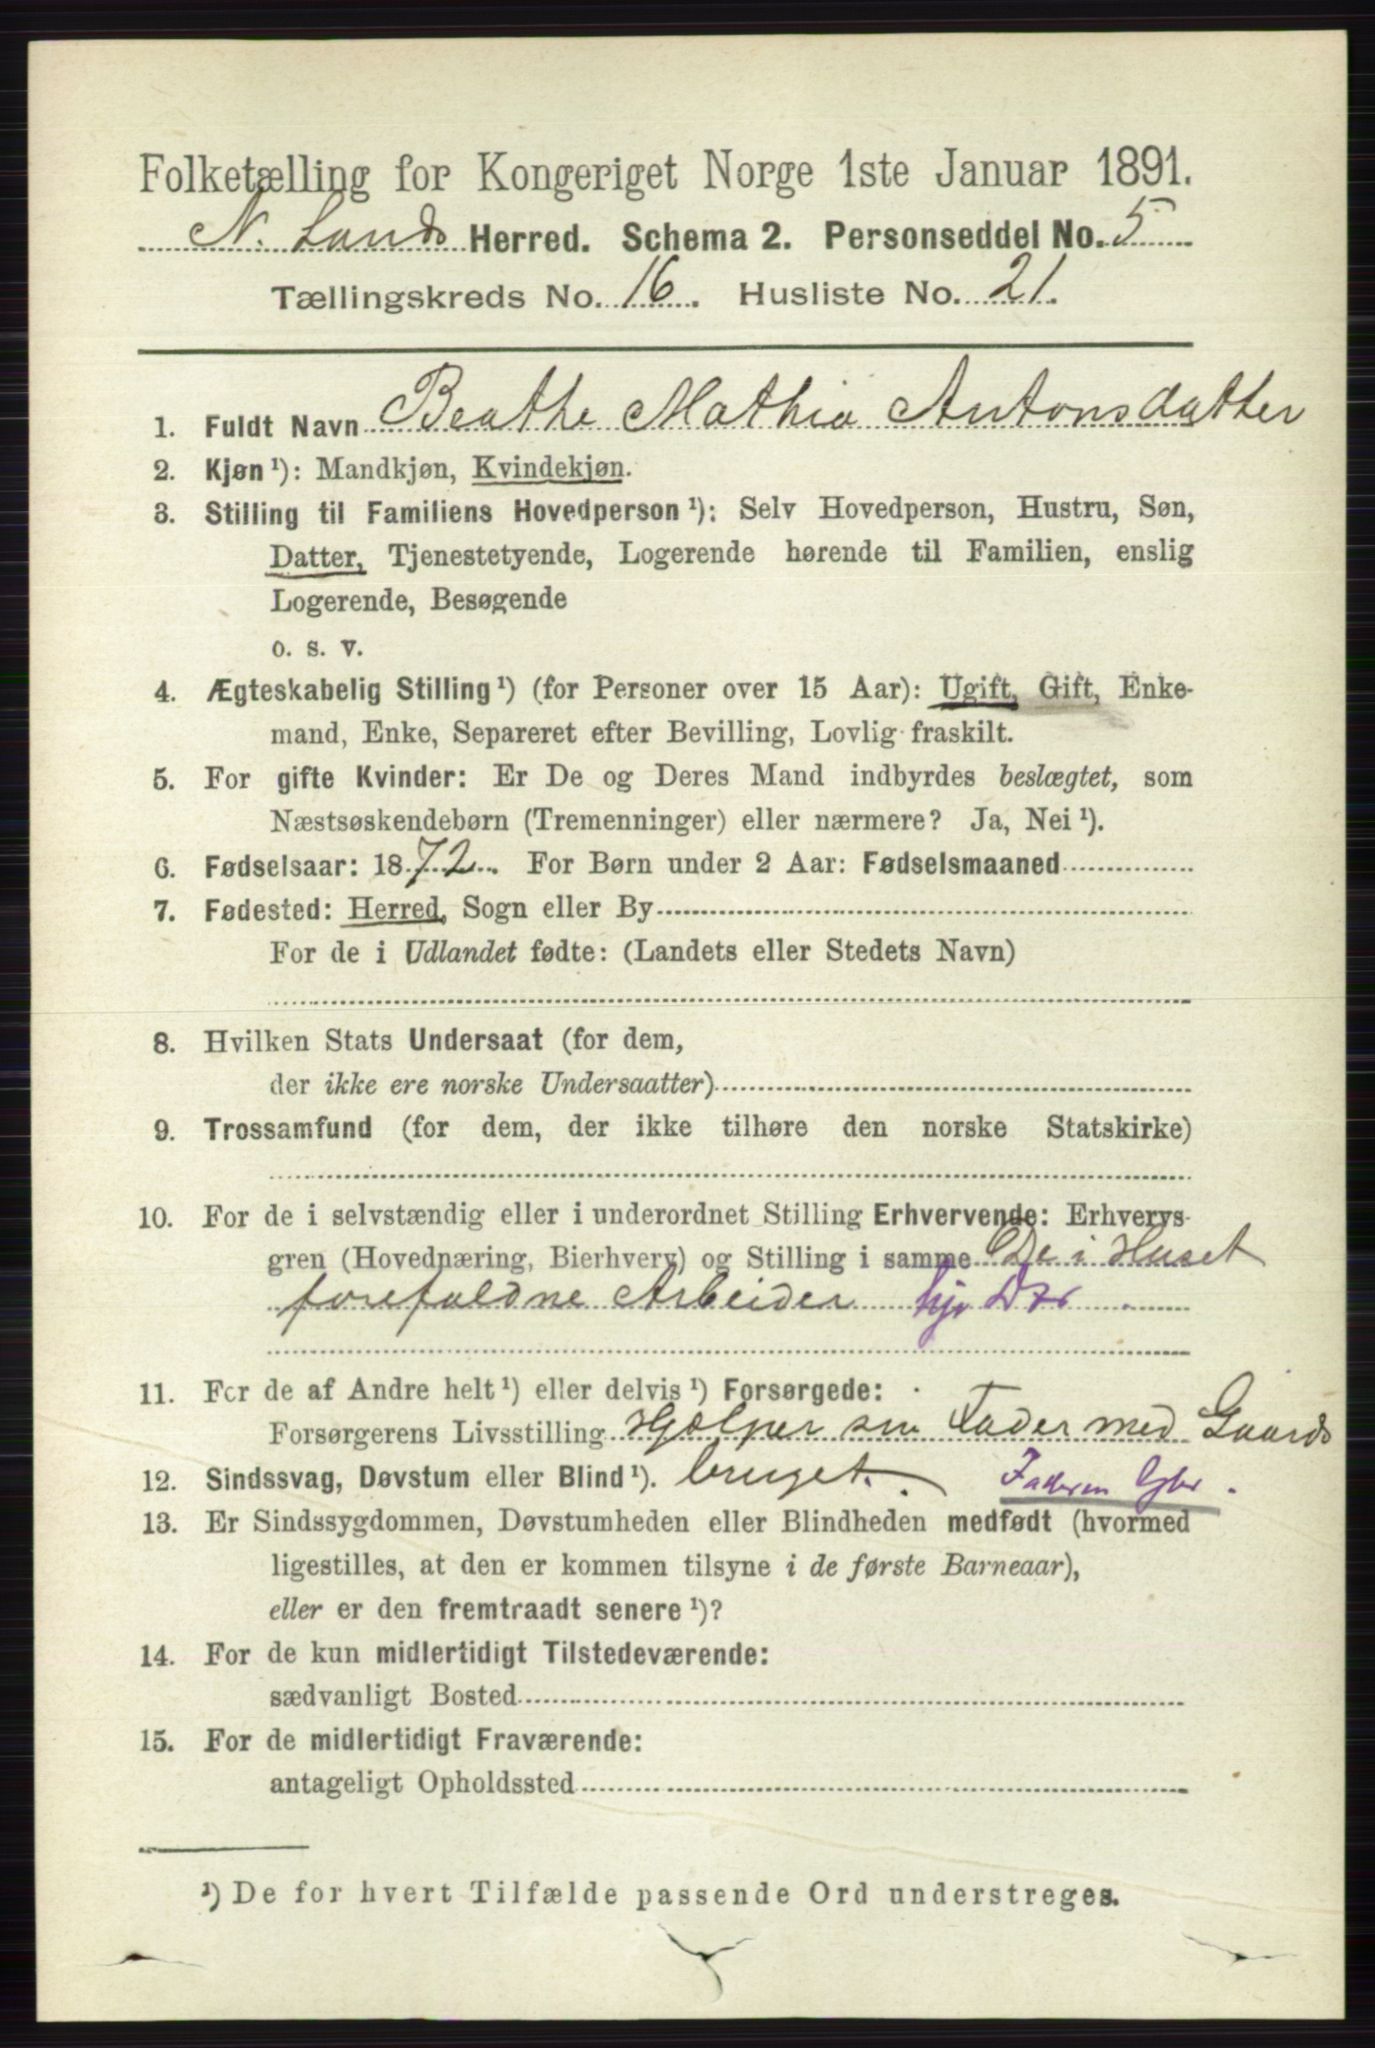 Folketælling for Kongeriget Norge 1ste Januar 1891.
N. Lands Herred. Schema 2. Personseddel No. 5
Tællingskreds No. 16. Husliste No. 21.
1. Fuldt Navn Beathe Mathia Antonsdatter
2. Kjøn¹): Mandkjøn, Kvindekjøn.
3. Stilling til Familiens Hovedperson¹): Selv Hovedperson, Hustru, Søn,
Datter, Tjenestetyende, Logerende hørende til Familien, enslig
Logerende, Besøgende
o. s. v.
4. Ægteskabelig Stilling¹) (for Personer over 15 Aar): Ugift, Gift, Enke-
mand, Enke, Separeret efter Bevilling, Lovlig fraskilt.
5. For gifte Kvinder: Er De og Deres Mand indbyrdes beslægtet, som
Næstsøskendebørn (Tremenninger) eller nærmere? Ja, Nei¹).
6. Fødselsaar: 1872. For Børn under 2 Aar: Fødselsmaaned
7. Fødested: Herred, Sogn eller By
For de i Udlandet fødte: (Landets eller Stedets Navn)
8. Hvilken Stats Undersaat (for dem,
der ikke ere norske Undersaatter)
9. Trossamfund (for dem, der ikke tilhøre den norske Statskirke)
10. For de i selvstændig eller i underordnet Stilling Erhvervende: Erhvervs-
gren (Hovednæring, Bierhverv) og Stilling i samme De i Huset
forefaldne Arbeider
11. For de af Andre helt¹) eller delvis¹) Forsørgede:
Forsørgerens Livsstilling Hjælper sin Fader med Gaards
12. Sindssvag, Døvstum eller Blind¹). bruget. Faderen Gbr.
13. Er Sindssygdommen, Døvstumheden eller Blindheden medfødt (hvormed
ligestilles, at den er kommen tilsyne i de første Barneaar),
eller er den fremtraadt senere¹)?
14. For de kun midlertidigt Tilstedeværende:
sædvanligt Bosted
15. For de midlertidigt Fraværende:
antageligt Opholdssted
¹) De for hvert Tilfælde passende Ord understreges.